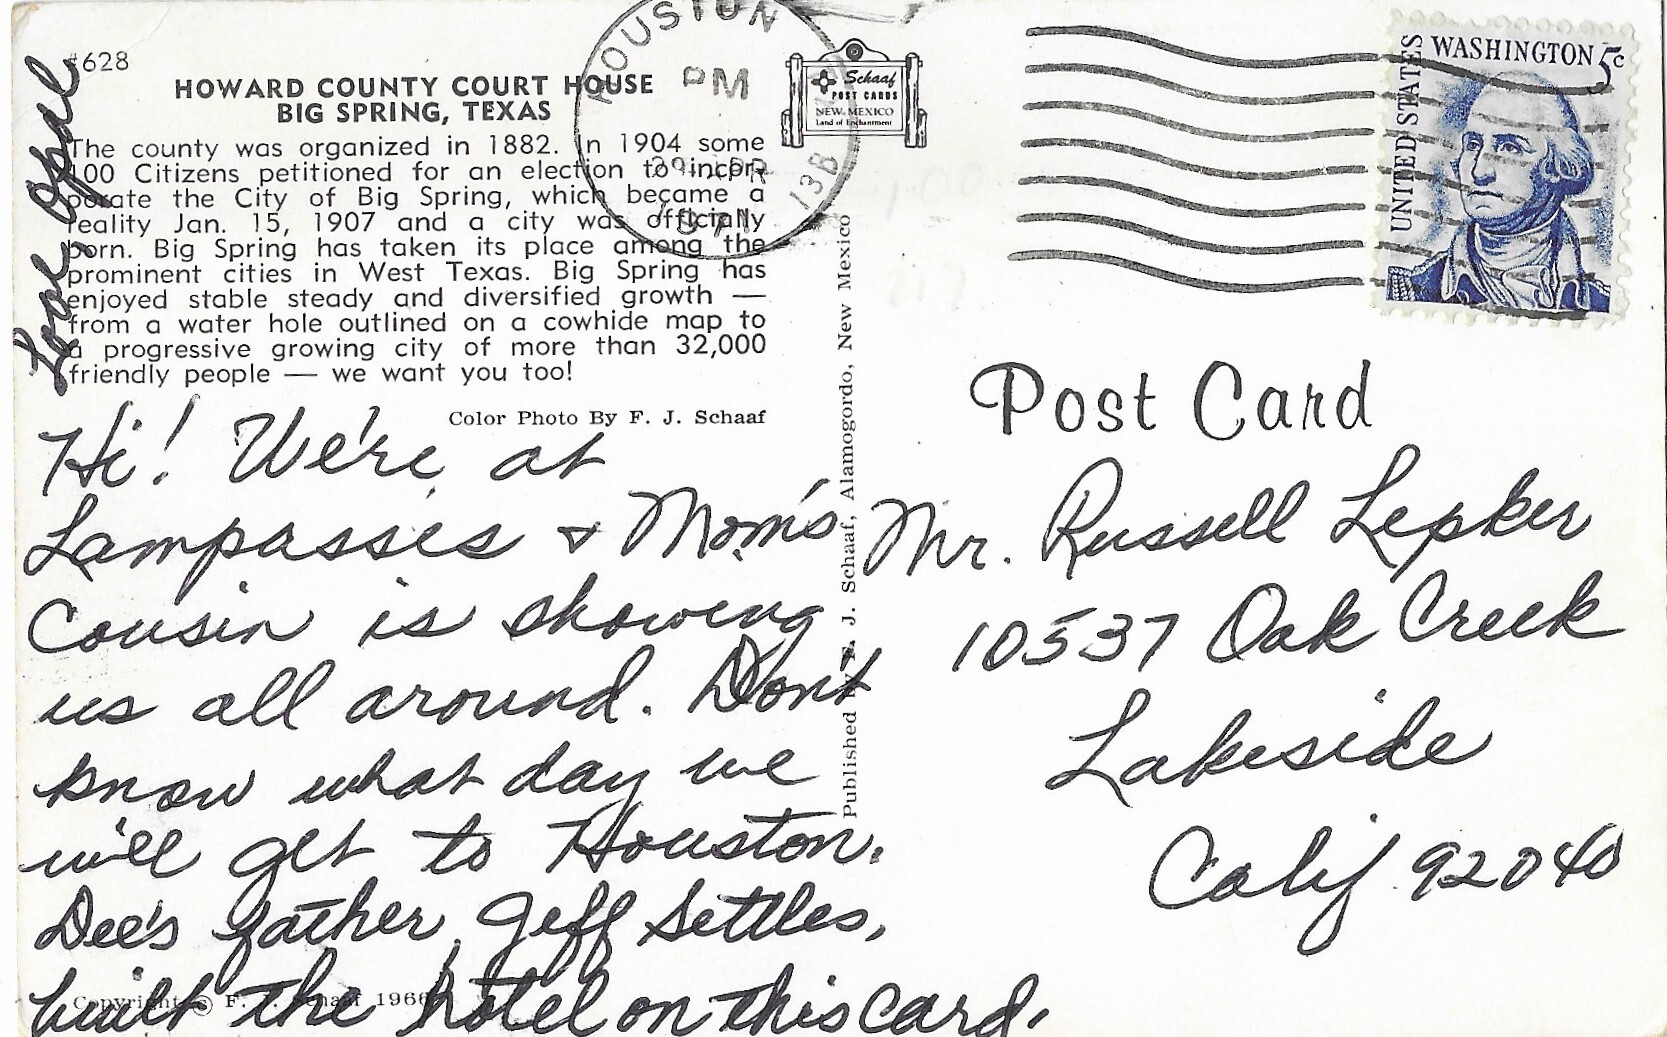 #628
HOWARD COUNTY COURT HOUSE
BIG SPRING, TEXAS
The county was organized in 1882. In 1904 some
100 Citizens petitioned for an election to incpr-
porate the City of Big Spring, which became a
reality Jan. 15, 1907 and a city was officially
born. Big Spring has taken its place among the
prominent cities in West Texas. Big Spring has
enjoyed stable steady and diversified growth —
from a water hole outlined on a cowhide map to
a progressive growing city of more than 32,000
friendly people — we want you too!
Color Photo By F. J. Schaaf
Hi! We're at
Lampasses & Mom's
Cousin is showing
us all around. Dont
know what day we
will get to Houston.
Dee's father, Jeff Settles,
built the hotel on this card.
Love, Opal
Copyright © F. J. Schaaf 1966
Published by F. J. Schaaf, Alamogordo, New Mexico
Schaaf
POST CARDS
NEW MEXICO
Land of Enchantment
HOUSTON
PM
APR
1971
13B
UNITED STATES
WASHINGTON 5c
Post Card
Mr. Russell Lepker
10537 Oak Creek
Lakeside
Calif 92040